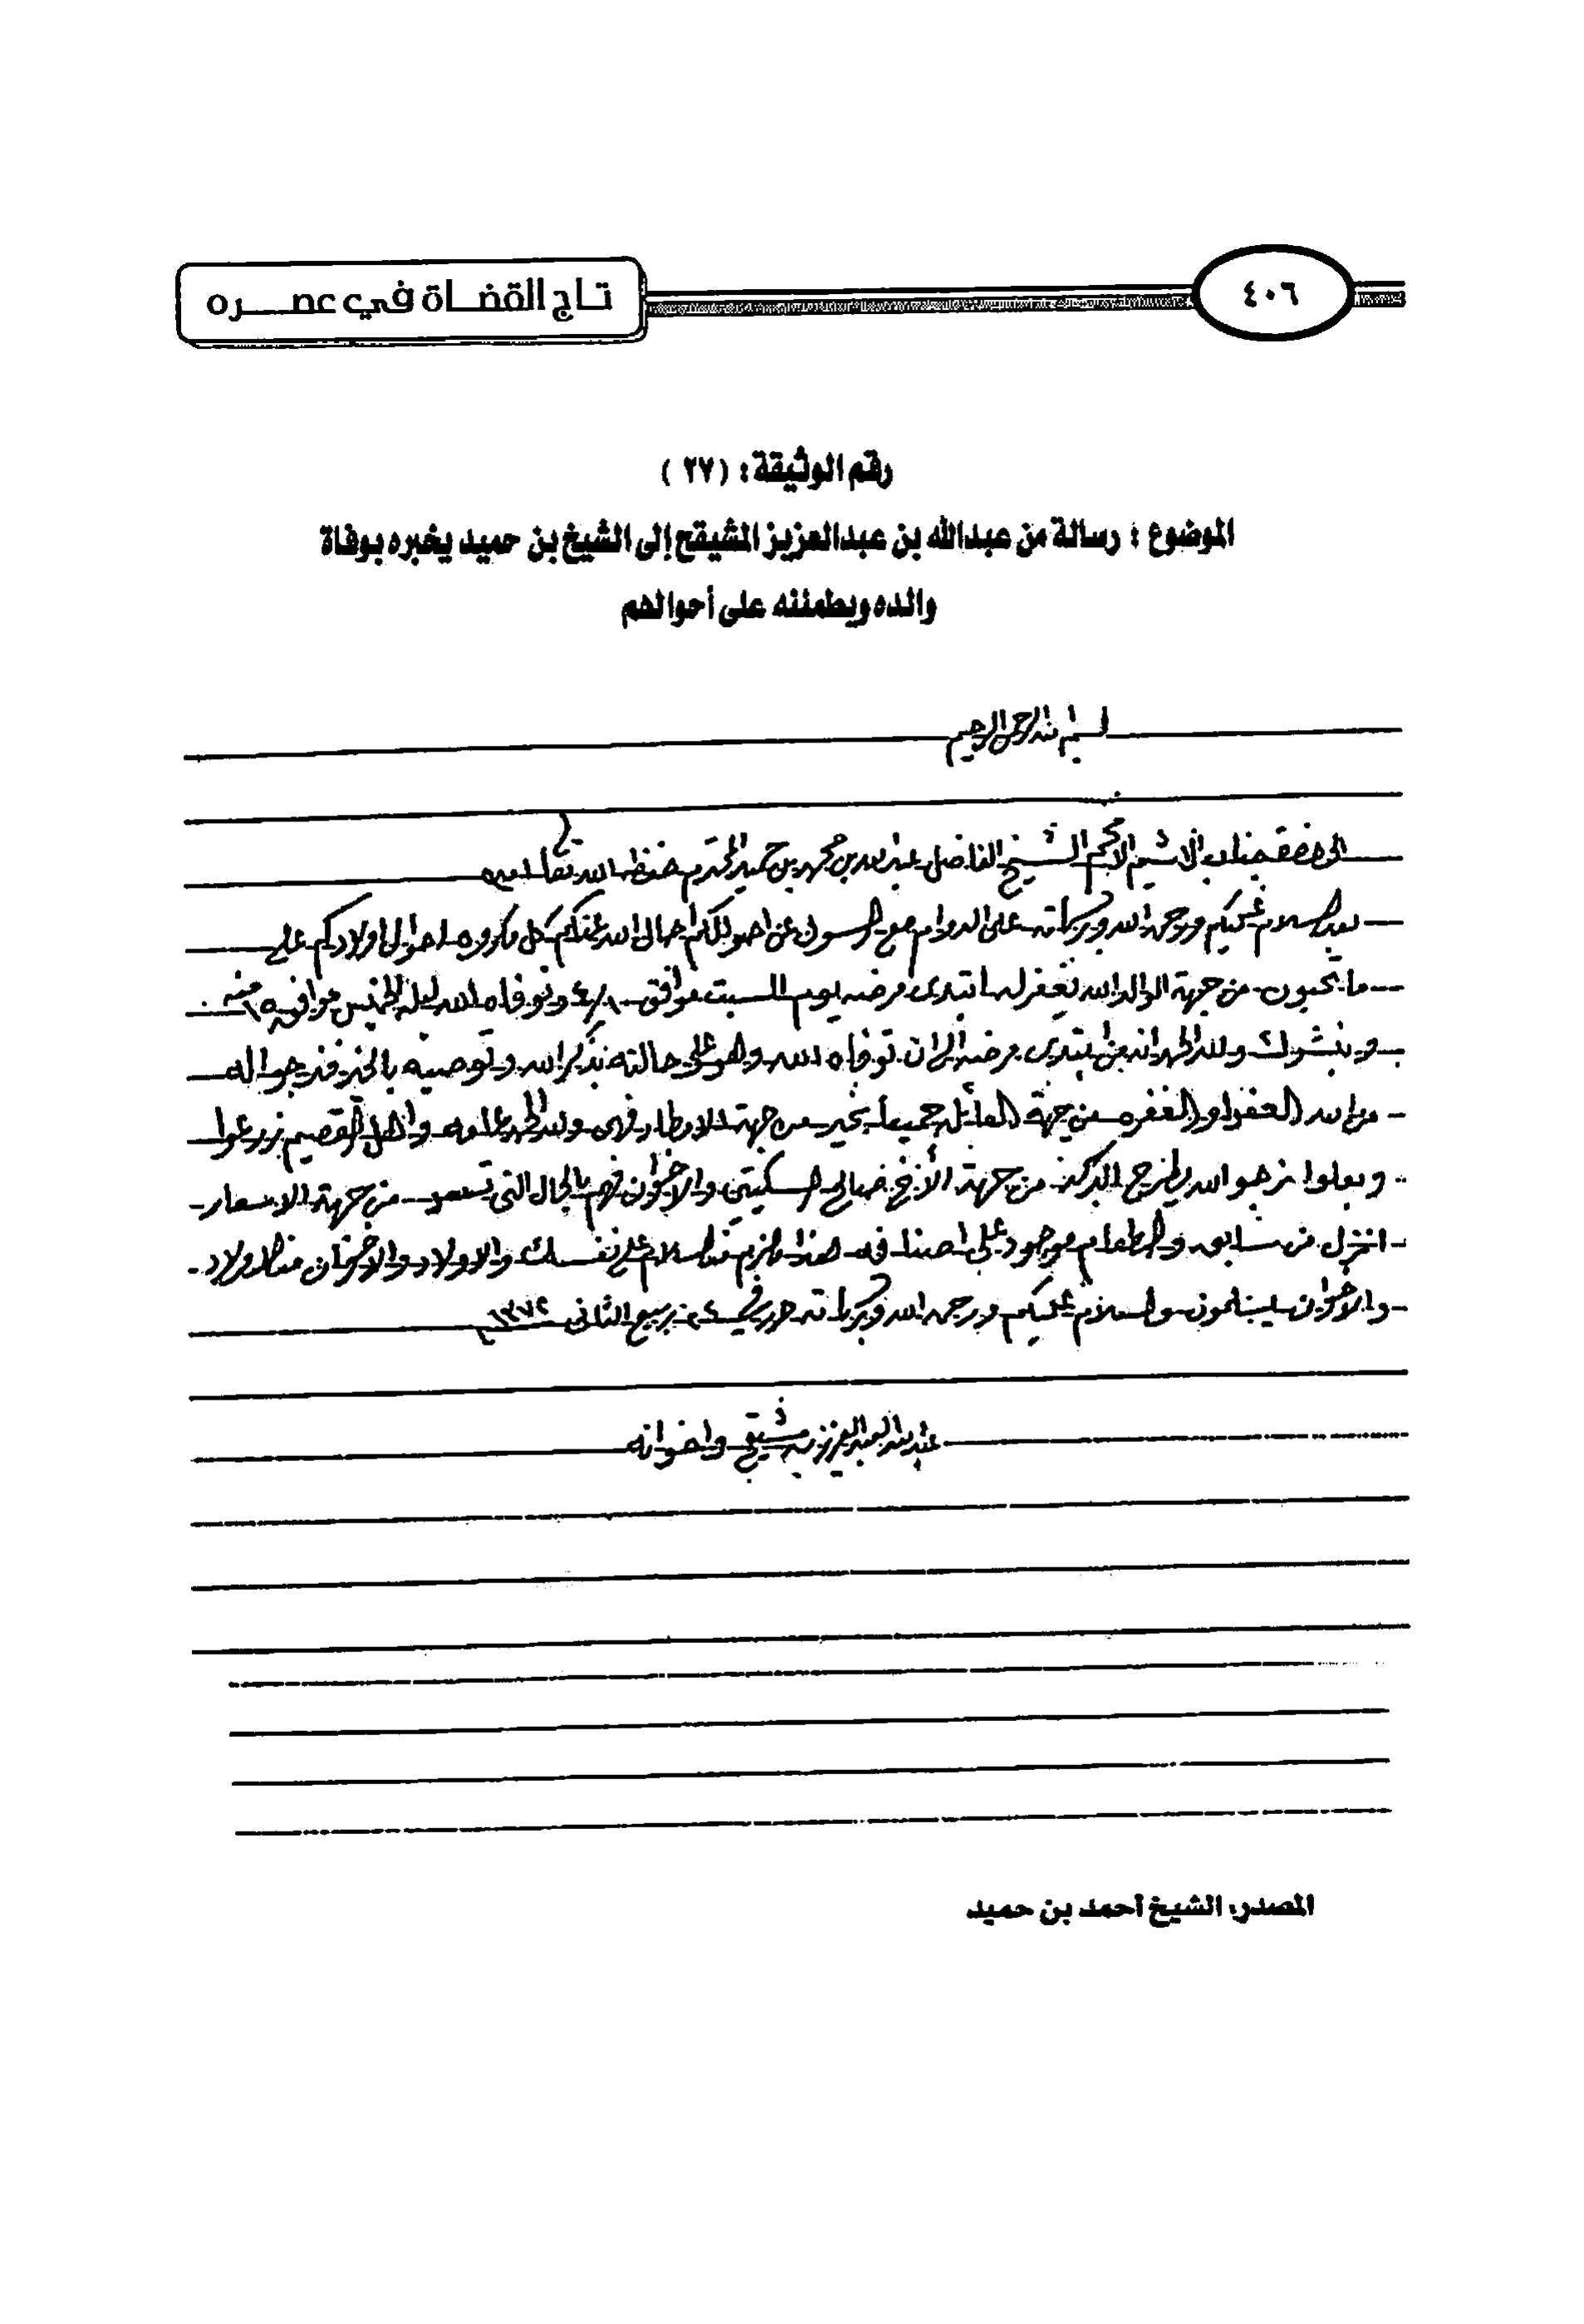 ٤٠٦
تاج القضاة في عصره
رقم الوثيقة : (٢٧)
الموضوع : رسالة من عبدالله بن عبدالعزيز المشيقح إلى الشيخ بن حميد يخبره بوفاة
والده ويطمئنه على أحوالهم
بسم الله الرحمن الرحيم
جناب الاشيم الاكرم الشيخ الفاضل عبدالله بن محمد بن حميد المحترم حفظه الله تعالى امين
بعد السلام عليكم ورحمة الله وبركاته على الدوام مع السوال عن احوالكم احوال اولادكم على
ما تحبون من جهة الوالد الله يغفر له ابتدى مرضه يوم السبت موافق وتوفاه الله ليلة الخميس موافق ١٥ منه
ونبشرك ولله الحمد انه من ابتدى مرضه الى ان توفاه الله وهو على حالته بذكر الله وتوصيه بالخير فنرجو اله
من الله العفو والمغفره من جهة العائله جميعا بخير من جهة الامطار ولله الحمد واهل القصيم زرعوا
وبعلوا نرجو الله يطرح البركة من جهة الأخ صالح السكيتي والاخوان فهم بالحال التي تسر من جهة الاسعار
انزل من سابق والطعام موجود على هذا مالزم منا السلام على نفسك والاولاد والاخوان منا الاولاد
والاخوان يسلمون والسلام عليكم ورحمة الله وبركاته حرر في ربيع الثاني ١٣٧٢
عبدالله العبدالعزيز مشيقح واخوانه
المصدر: الشيخ أحمد بن حميد